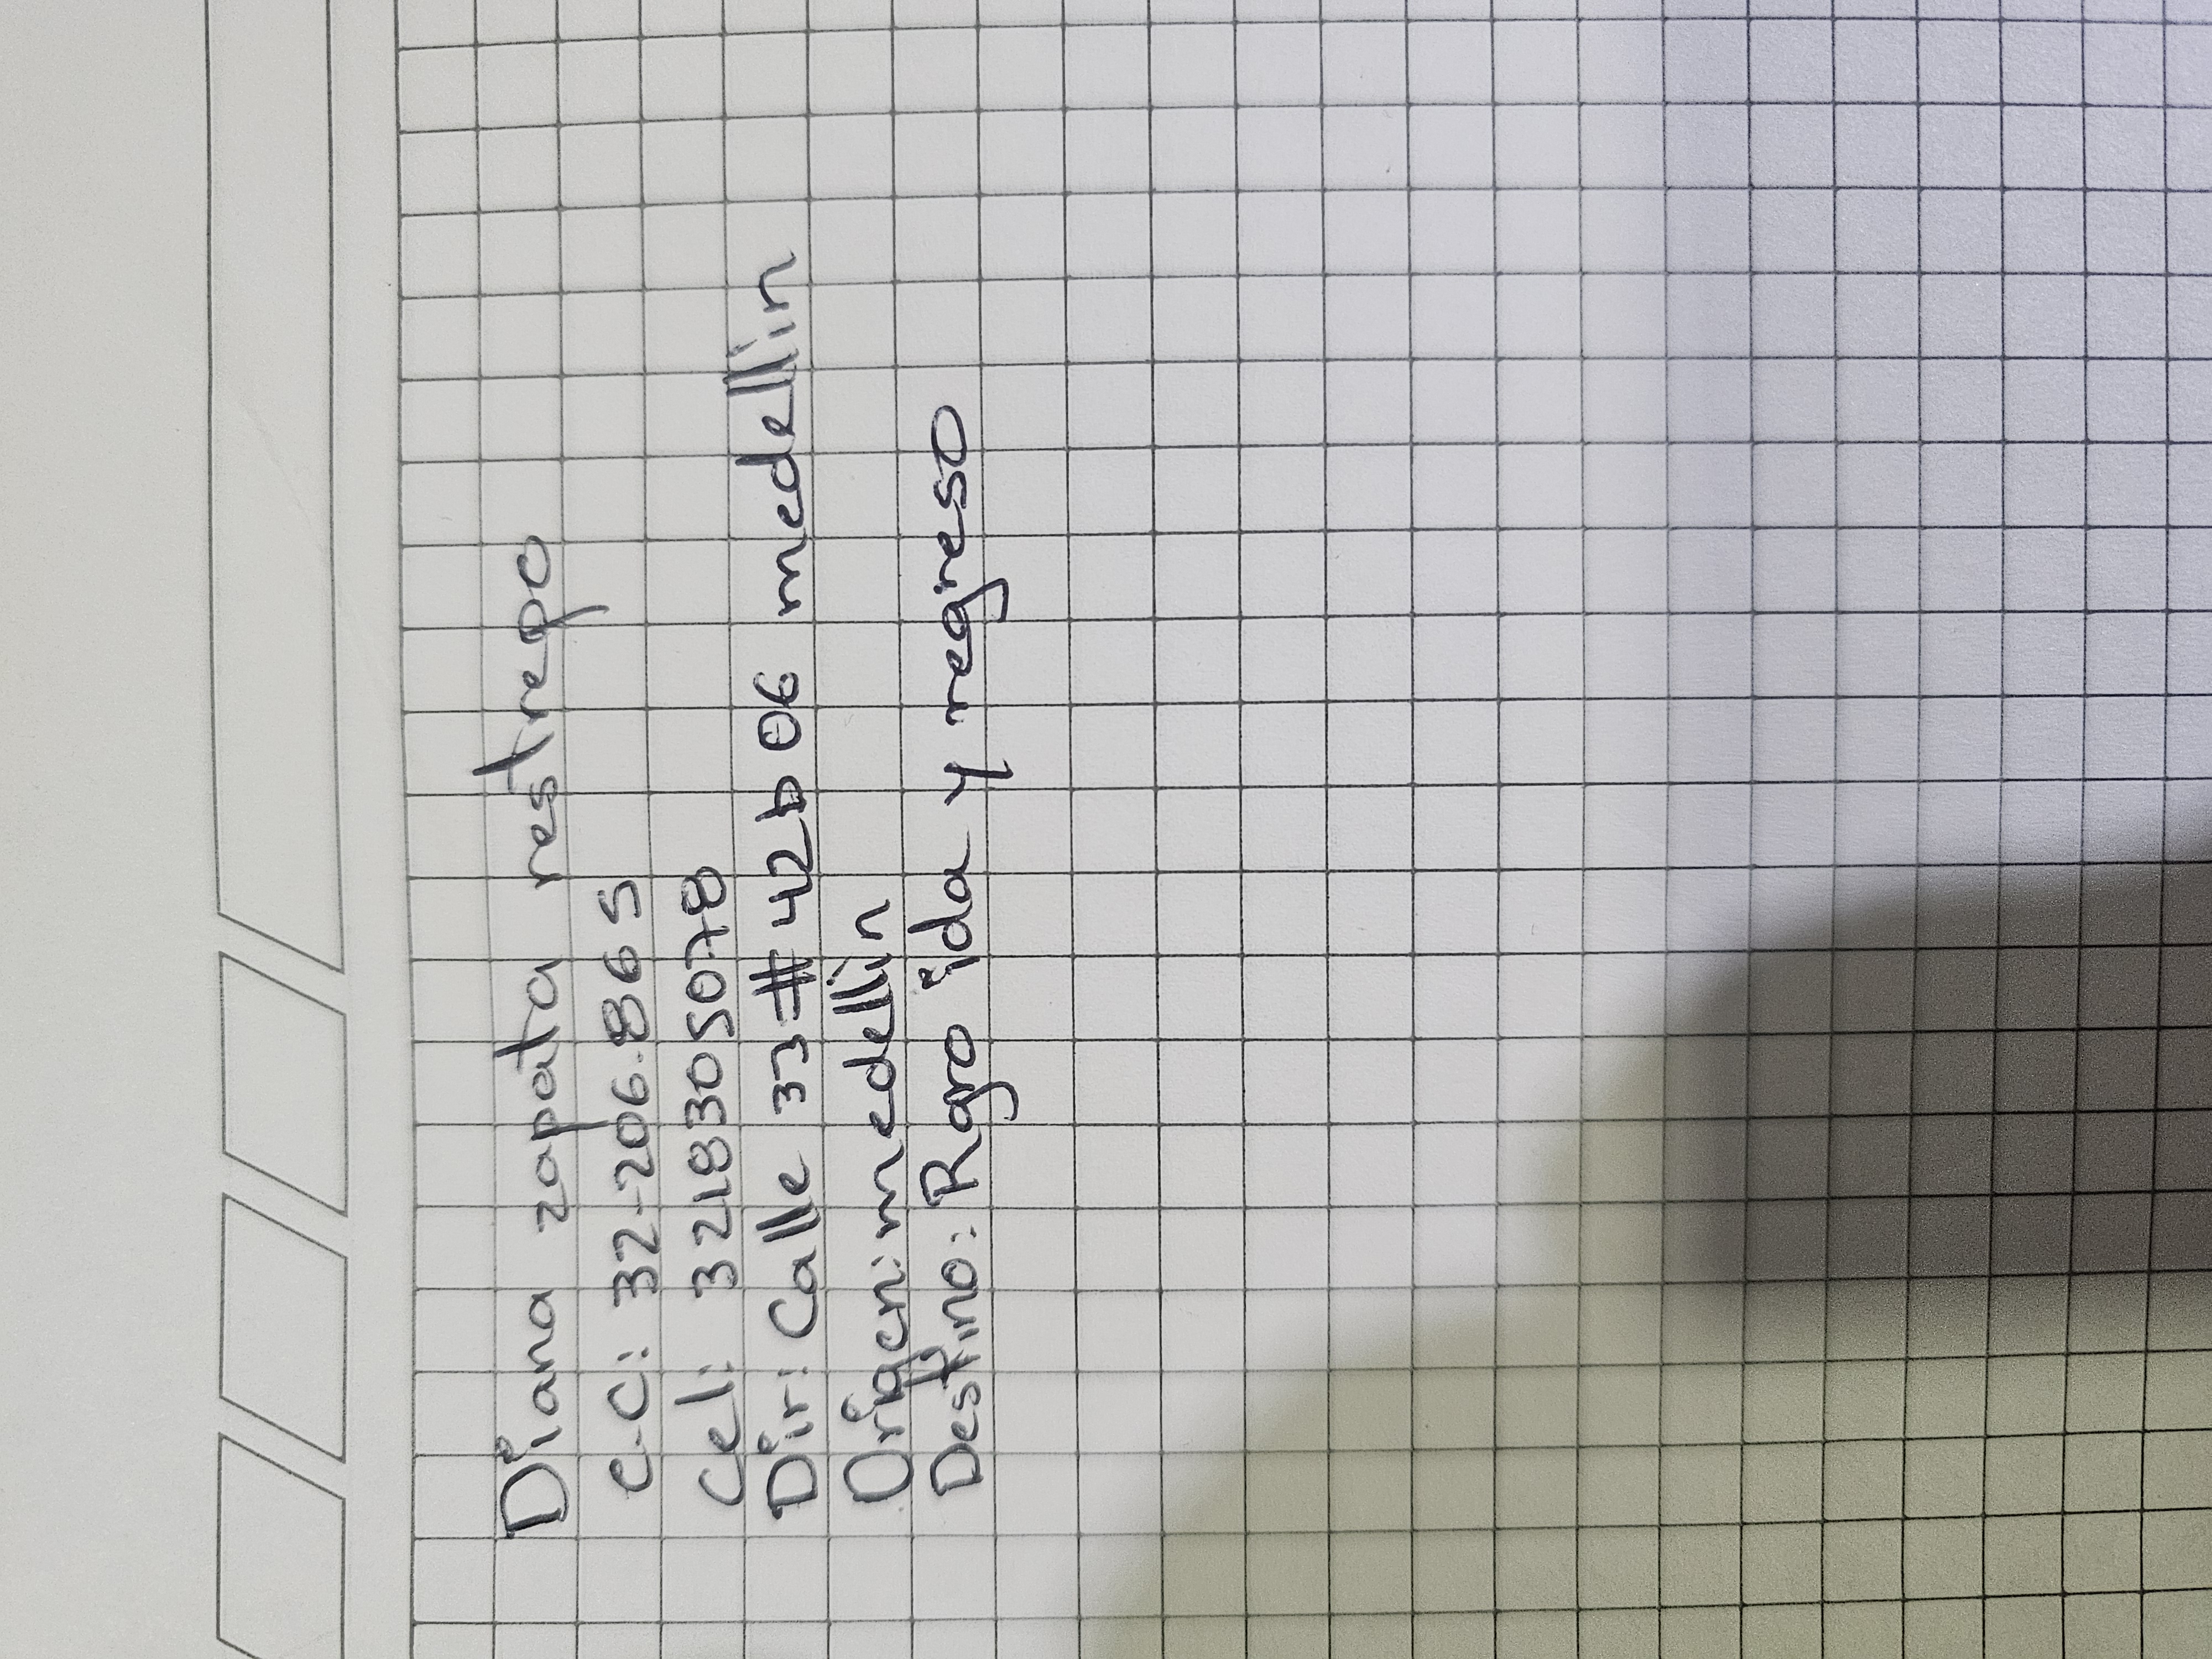 Diana zapata restrepo
C.C: 32-206.865
Cel: 3218305078
Dir: Calle 33 # 42b 06 medellin
Origen: medellin
Destino: Rgro ida y regreso